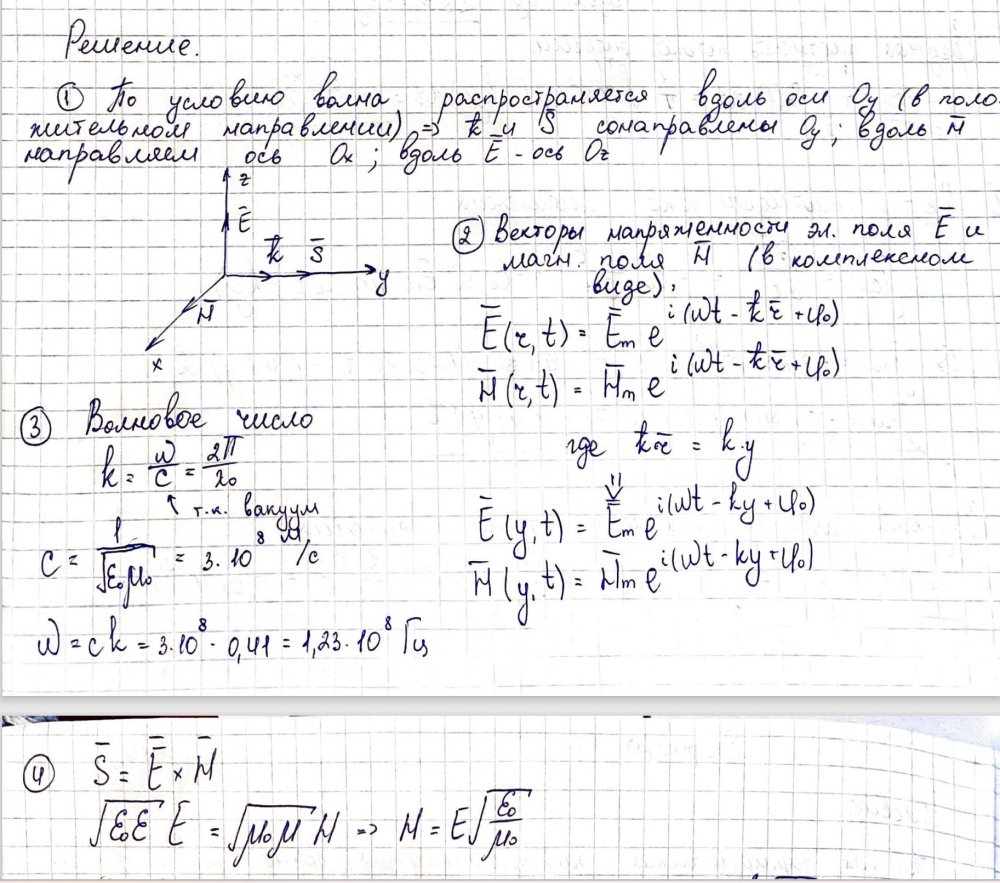 Решение.
① По условию волна распространяется вдоль оси Oy (в поло-
жительном направлении) => k̄ и S̄ сонаправлены Oy; вдоль H̄
направляем ось Ox; вдоль Ē - ось Oz
z
Ē
k̄ S̄
y
H̄
x
② Векторы напряженности эл. поля Ē и
магн. поля H̄ (в комплексном
виде):
Ē(r,t) = Ēm e^i(ωt - k̄r̄ + φ0)
H̄(r,t) = H̄m e^i(ωt - k̄r̄ + φ0)
где k̄r̄ = k·y
⇓
Ē(y,t) = Ēm e^i(ωt - ky + φ0)
H̄(y,t) = H̄m e^i(ωt - ky + φ0)
③ Волновое число
k = ω/c = 2π/λ0
↑ т.к. вакуум
c = 1/√ε0μ0 = 3·10^8 м/с
ω = ck = 3·10^8 · 0,41 = 1,23·10^8 Гц
④ S̄ = Ē × H̄
√ε0ε E = √μ0μ H => H = E√ε0/μ0